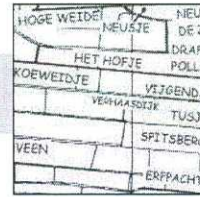 HOGE WEIDE
NEU
NEUSJE
DE Z
DRAF
HET HOFJE
POLL
KOEWEIDJE
VIJGEND
VERHAASDIJK
TUSJ
SPITSBERG
VEEN
ERPPACHT